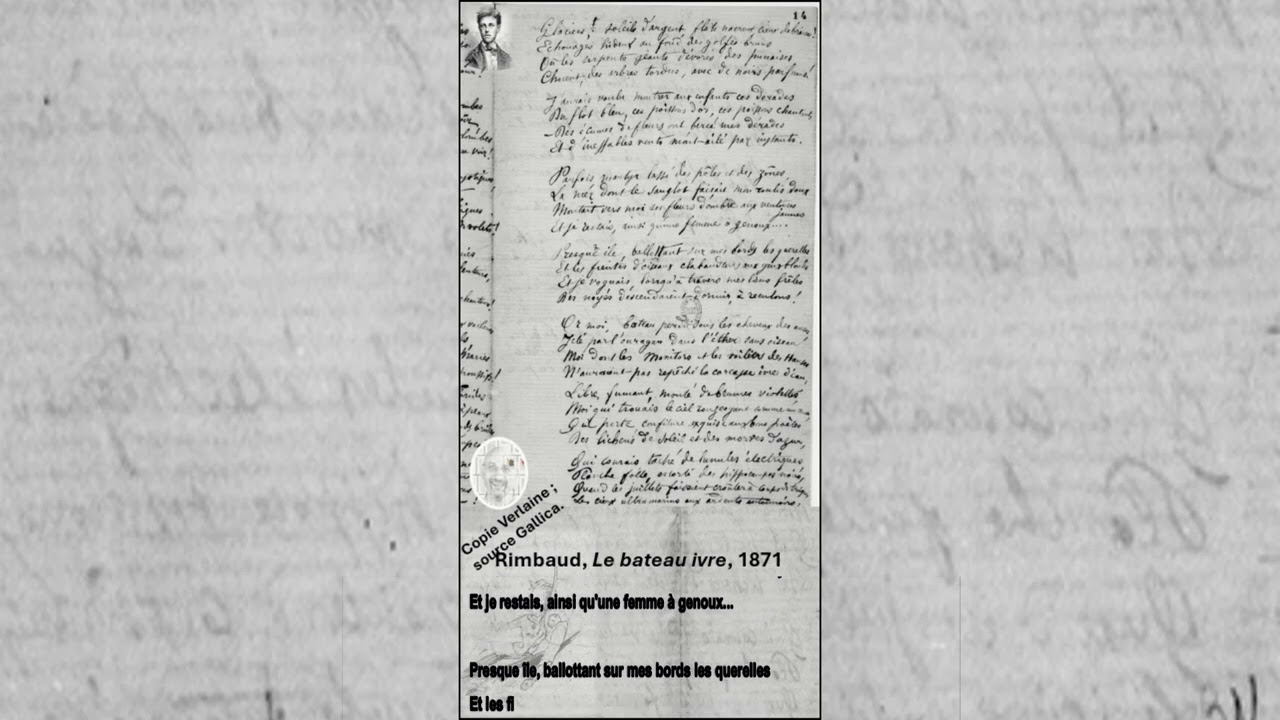 14
Glaciers, soleils d'argent, flots nacreux, cieux de braises!
Echouages hideux au fond des golfes bruns
Où les serpents géants dévorés des punaises
Choient, des arbres tordus, avec de noirs parfums!
J'aurais voulu montrer aux enfants ces dorades
Du flot bleu, ces poissons d'or, ces poissons chantants,
Des écumes de fleurs ont bercé mes dérades
Et d'ineffables vents m'ont ailé par instants.
Parfois, martyr lassé des pôles et des zônes,
La mer dont le sanglot faisait mon roulis doux
Montait vers moi ses fleurs d'ombre aux ventouses
jaunes
Et je restais, ainsi qu'une femme à genoux...
Presqu'île, ballottant sur mes bords les querelles
Et les fientes d'oiseaux clabaudeurs aux yeux blonds
Et je voguais, lorsqu'à travers mes liens frêles
Des noyés descendaient dormir, à reculons!
Or moi, bateau perdu sous les cheveux des anses
Jeté par l'ouragan dans l'éther sans oiseau,
Moi dont les Monitors et les voiliers des Hanses
N'auraient pas repêché la carcasse ivre d'eau,
Libre, fumant, monté de brumes violettes,
Moi qui trouais le ciel rougeoyant comme un mur
Qui porte, confiture exquise aux bons poètes
Des lichens de soleil et des morves d'azur,
Qui courais taché de lunules électriques
Planche folle, escorté des hippocampes noirs,
Quand les juillets faisaient crouler à coups de triques
Les cieux ultramarins aux ardents entonnoirs,
Copie Verlaine ;
source Gallica.
Rimbaud, Le bateau ivre, 1871
Et je restais, ainsi qu'une femme à genoux...
Presque île, ballottant sur mes bords les querelles
Et les fi